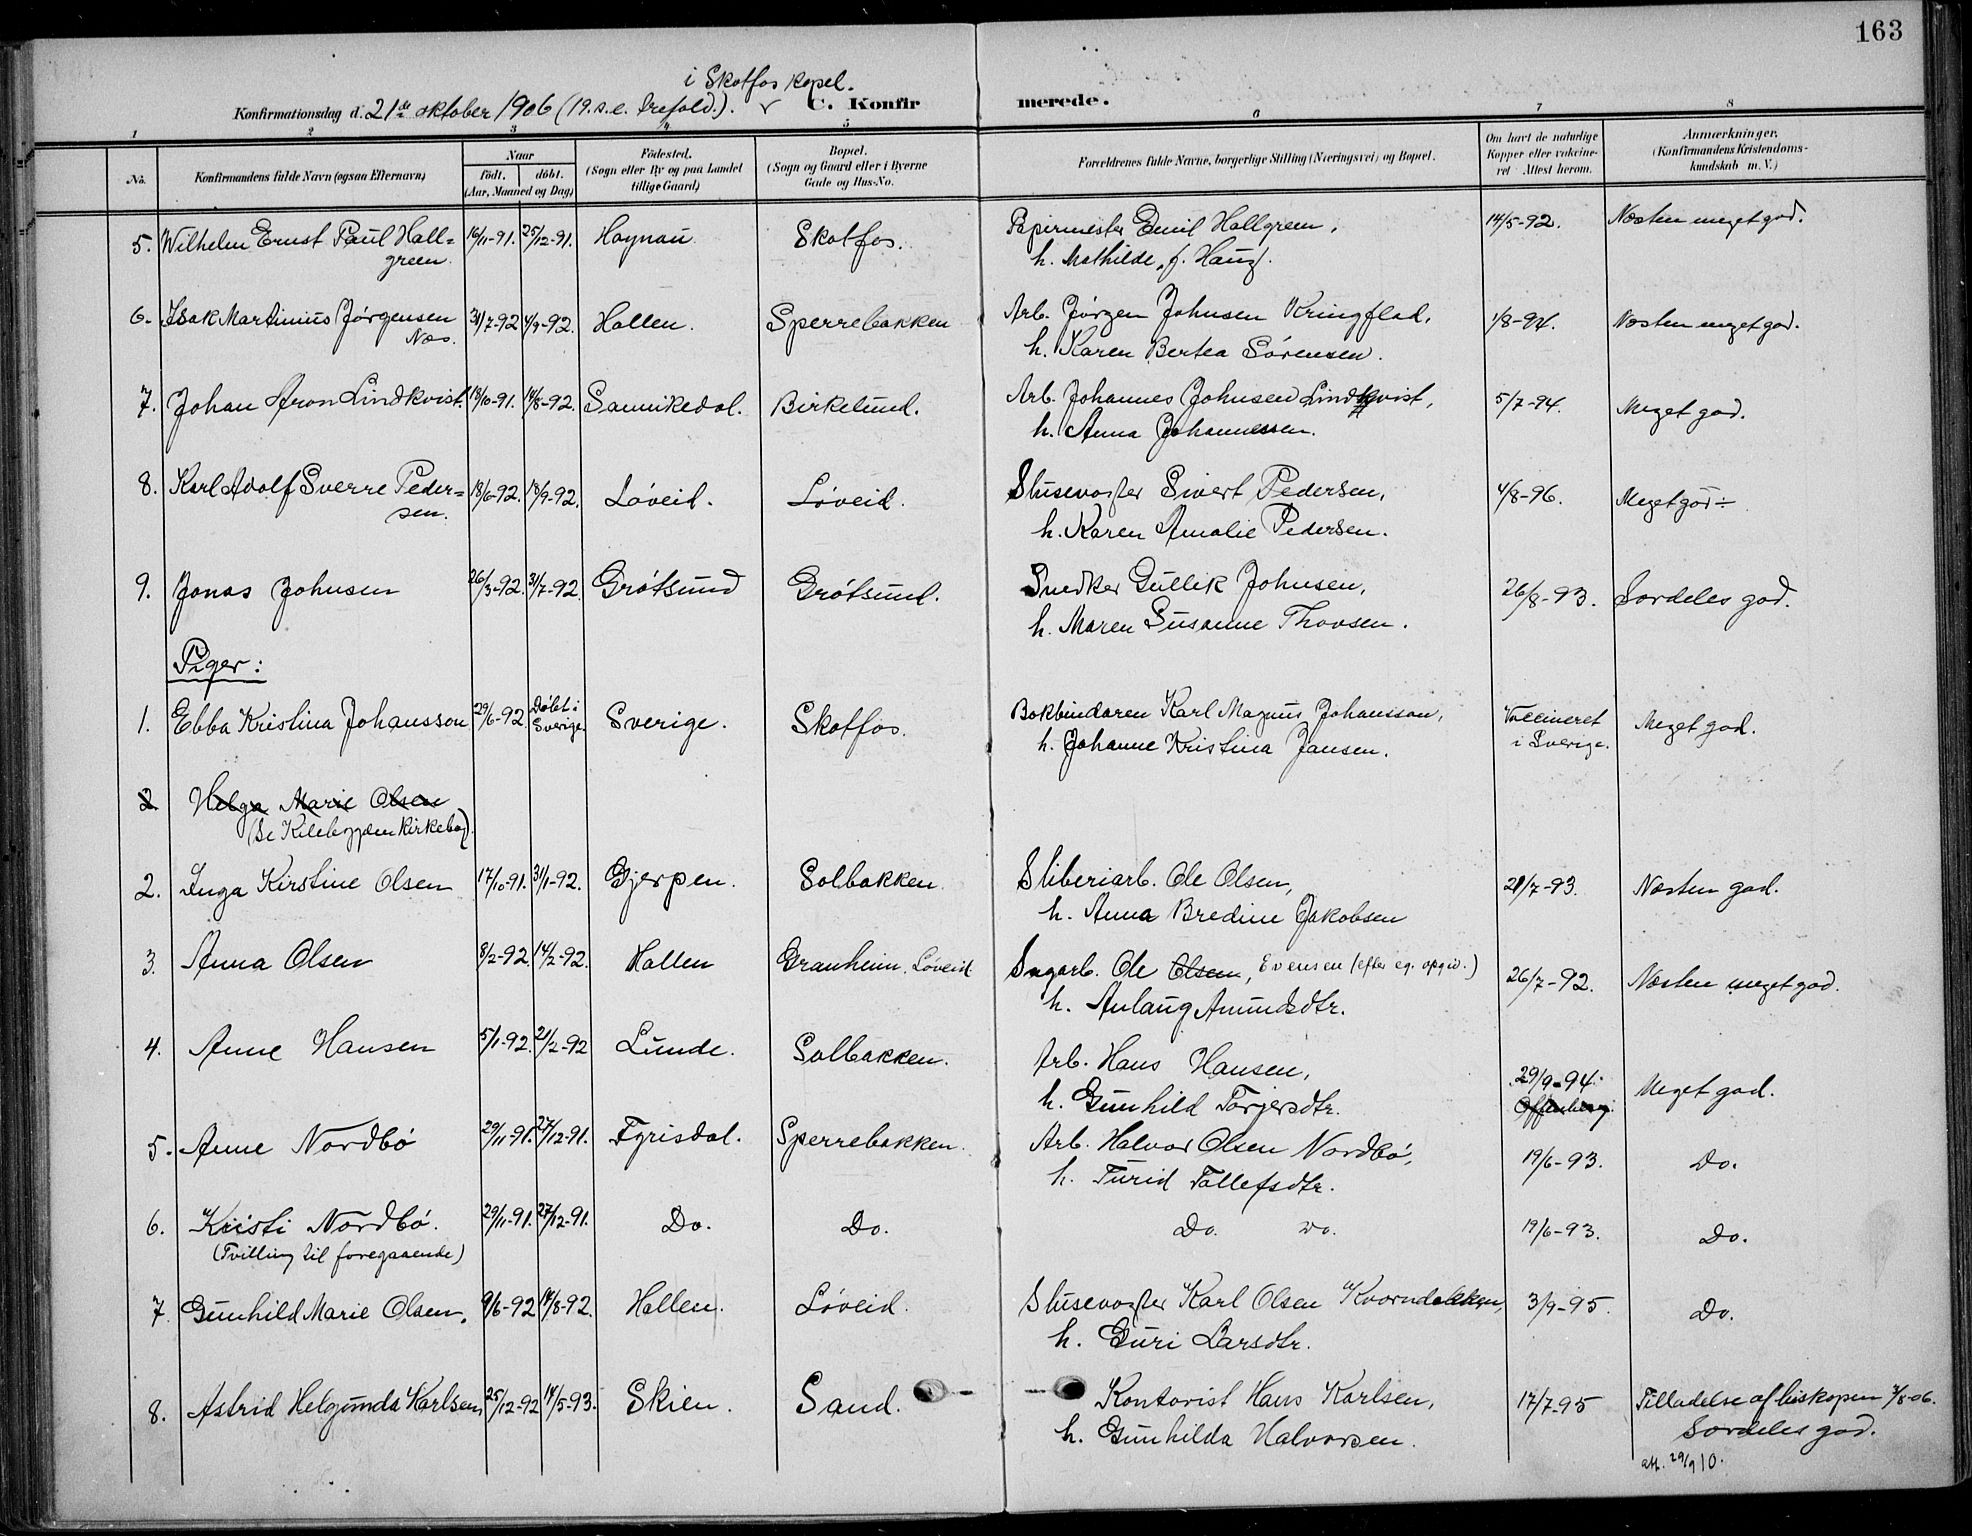 163
i Skotfos kapel.
Konfirmationsdag d. 21de oktober 1906 (19. s. e. trefold.). C. Konfirmerede.
1 2 3 4 5 6 7 8
No. Konfirmandens fulde Navn (ogsaa Efternavn) Naar födt. döbt. (Aar, Maaned og Dag) Födested. (Sogn eller By og paa Landet tillige Gaard) Bopæl. (Sogn og Gaard eller i Byerne Gade og Hus-No. Forældrenes fulde Navne, borgerlige Stilling (Næringsvei) og Bopæl. Om havt de naturlige Kopper eller vakcineret. Attest herom. Anmærkninger. (Konfirmandens Kristendomskundskab m. V.)
5. Wilhelm Ernst Paul Hall= 16/11-91. 25/12-91. Haynau. Skotfos. Papirmester Emil Hallgreen, 14/5-92. Næsten meget god.
green. h. Mathilde, f. Haug.
6. Isak Martinius Jørgensen 31/7-92 4/9-92. Hollen. Sperrebakken Arb. Jörgen Johnsen Kringflad, 1/8-94. Næsten meget god.
Næs. h. Karen Bertea Sörensen.
7. Johan Aron Lindkvist. 13/10-91. 14/8-92. Sannikedal. Birkelund. Arb. Johannes Johnsen Lindkvist, 5/7-94. Meget god.
h. Anna Johannessen.
8. Karl Adolf Sverre Peder= 18/6-92. 18/9-92. Löveid. Löveid. Slusevogter Sivert Pedersen, 4/8-96. Meget god ÷
sen. h. Karen Amalie Pedersen.
9. Jonas Johnsen 26/3-92. 31/7-92. Grötsund Grötsund. Snedker Gullik Johnsen, 26/8-93. Særdeles god.
h. Maren Susanne Thovsen.
Piger:
1. Ebba Kristina Johansson 29/6-92. Döbt i Sverige. Sverige. Skotfos. Bokbindaren Karl Magnus Johansson, Vaccineret i Sverige. Meget god.
h. Johanne Kristina Jansen.
2 Helga Marie Olsen
(Se Kilebygdens kirkebog).
2. Inga Kirstine Olsen 17/10-91. 31/1-92. Gjerpen. Solbakken. Sliberiarb. Ole Olsen, 21/7-93. Næsten god.
h. Anna Bredine Jakobsen
3. Anna Olsen 8/2-92. 14/2-92. Hollen Granheim, Löveid Sagarb. Ole Olsen, Evensen (efter eg. opgiv.) 26/7-92. Næsten meget god.
h. Anlaug Amundsdtr.
4. Anne Hansen 5/1-92. 21/2-92 Lunde. Solbakken. Arb. Hans Hansen, 29/9-94. Meget god.
h. Gunhild Torjersdtr.
5. Anne Nordbö 29/11-91. 27/12-91. Fyrisdal. Sperrebakken. Arb. Halvor Olsen Nordbö, 19/6-93. Do.
h. Turid Tollefsdtr.
6. Kristi Nordbö. 29/11-91. 27/12-91. Do. Do. Do. Do. 19/6-93. Do.
(Tvilling til foregaaende)
7. Gunhild Marie Olsen. 9/6-92 14/8-92. Hollen. Löveid. Slusevogter Karl Olsen Kvorndokken, 3/9-95. Do.
h. Guri Larsdtr.
8. Astrid Helgunda Karlsen, 25/12-92 14/5-93. Skien. Sand. Kontorist Hans Karlsen, 17/7-95 Tilladelse af biskopen 7/8-06.
h. Gunhilda Halvorsen. Særdeles god.
att. 29/9 10.